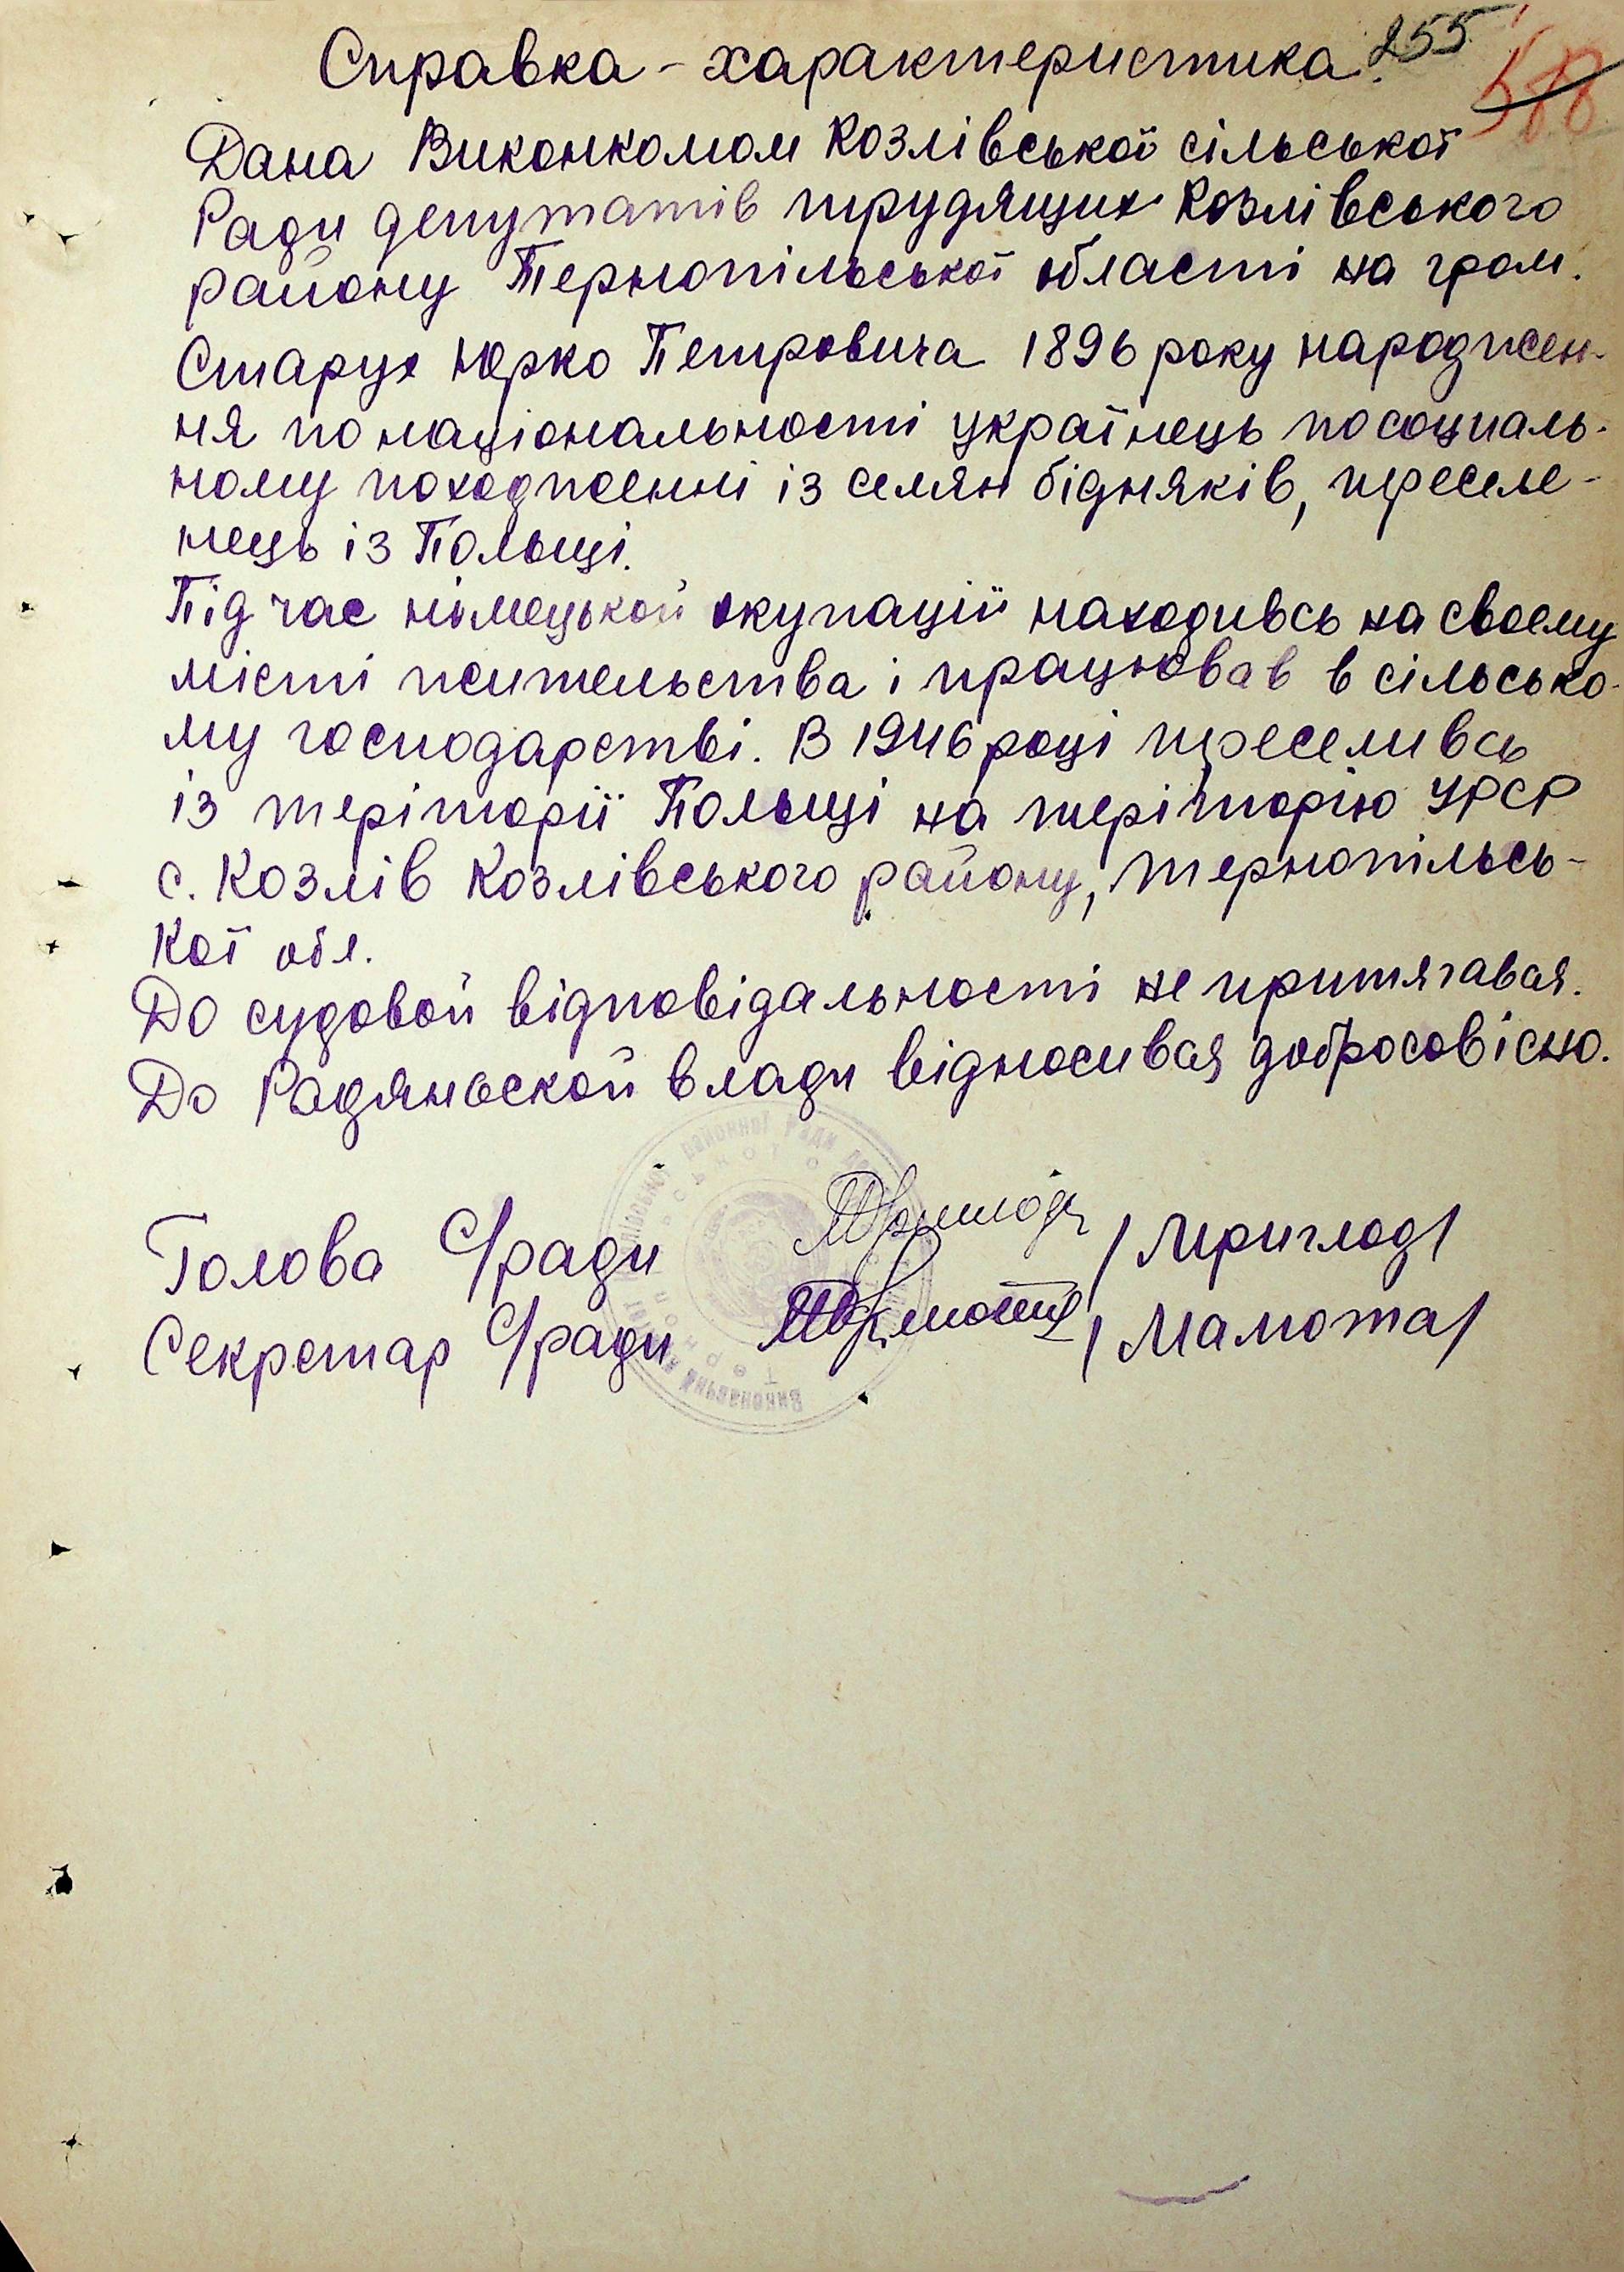 255
Справка - характеристика.
Дана Виконкомом Козлівської сільської
Ради депутатів трудящих Козлівського
району Тернопільської області на гром.
Старух Юрко Петровича 1896 року народжен-
ня по національності українець по социаль-
ному походженні із семян бідняків, пересле-
нець із Польщі.
Під час німецькой окупації находивсь на своему
місті жительства і працював в сільсько-
му господарстві. В 1946 році преселивсь
із теріторії Польщі на теріторію УРСР
с. Козлів Козлівського району, Тернопільсь-
кої обл.
До судовой відповідальності не притягавая.
До Радяньской влади відносивая добросовісно.
Голова С/ради /Приглод/
Секретар С/ради /Мамота/